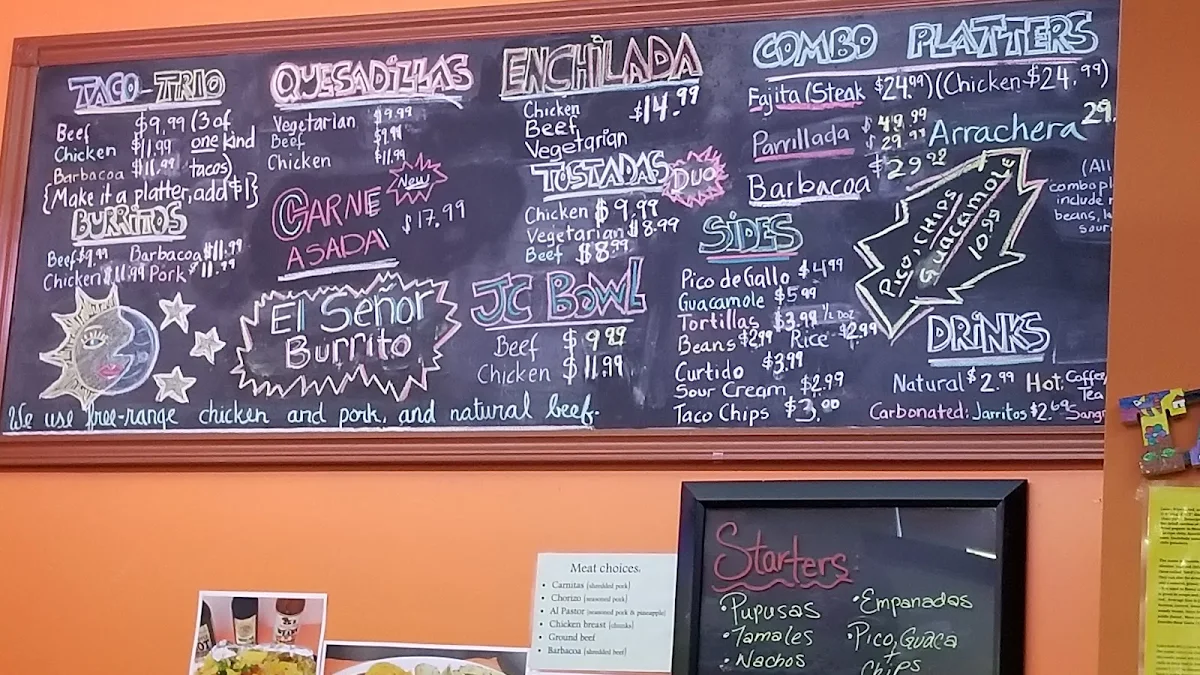 TACO-TRIO
Beef $9.99 (3 of
Chicken $11.99 one kind
Barbacoa $11.99 tacos)
{Make it a platter, add $1}
BURRITOS
Beef $9.99 Barbacoa $11.99
Chicken $11.99 Pork $11.99
QUESADILLAS
Vegetarian $9.99
Beef $9.99
Chicken $11.99
CARNE
ASADA
New
$17.99
El Señor
Burrito
We use free-range chicken and pork, and natural beef.
ENCHILADA
Chicken $14.99
Beef
Vegetarian
TOSTADAS
DUO
Chicken $9.99
Vegetarian $8.99
Beef $8.99
JC BOWL
Beef $9.99
Chicken $11.99
COMBO PLATTERS
Fajita (Steak $24.99) (Chicken $24.99)
Parrillada $49.99
$29.99
Arrachera 29.
Barbacoa $29.99
(All
combo pl
include
beans,
sour
PICO, CHIPS
Guacamole
10.99
SIDES
Pico de Gallo $4.99
Guacamole $5.99
Tortillas $3.99 1/2 DOZ
Beans $2.99 Rice $2.99
Curtido $3.99
Sour Cream $2.99
Taco Chips $3.00
DRINKS
Natural $2.99 Hot: Coffee,
Tea
Carbonated: Jarritos $2.69 Sangr
Meat choices:
• Carnitas (shredded pork)
• Chorizo (seasoned pork)
• Al Pastor (seasoned pork & pineapple)
• Chicken breast (chunks)
• Ground beef
• Barbacoa (shredded beef)
Starters
• Pupusas
• Tamales
• Nachos
• Empanadas
• Pico, Guaca
+
Chips